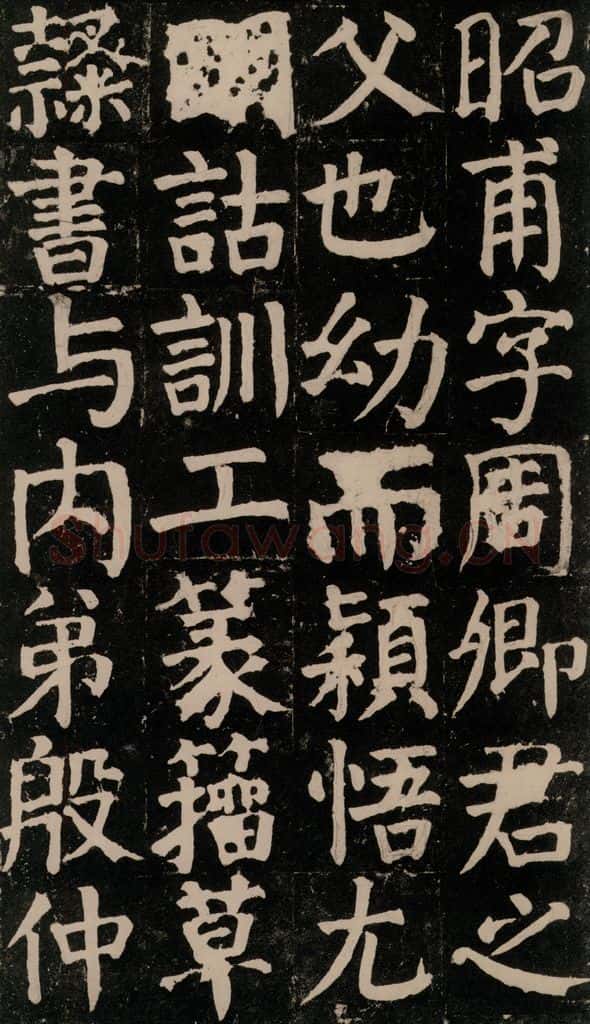 昭甫字周卿君之
父也幼而穎悟尤
明詁訓工篆籀草
隸書与内弟殷仲
Shufawang.CN